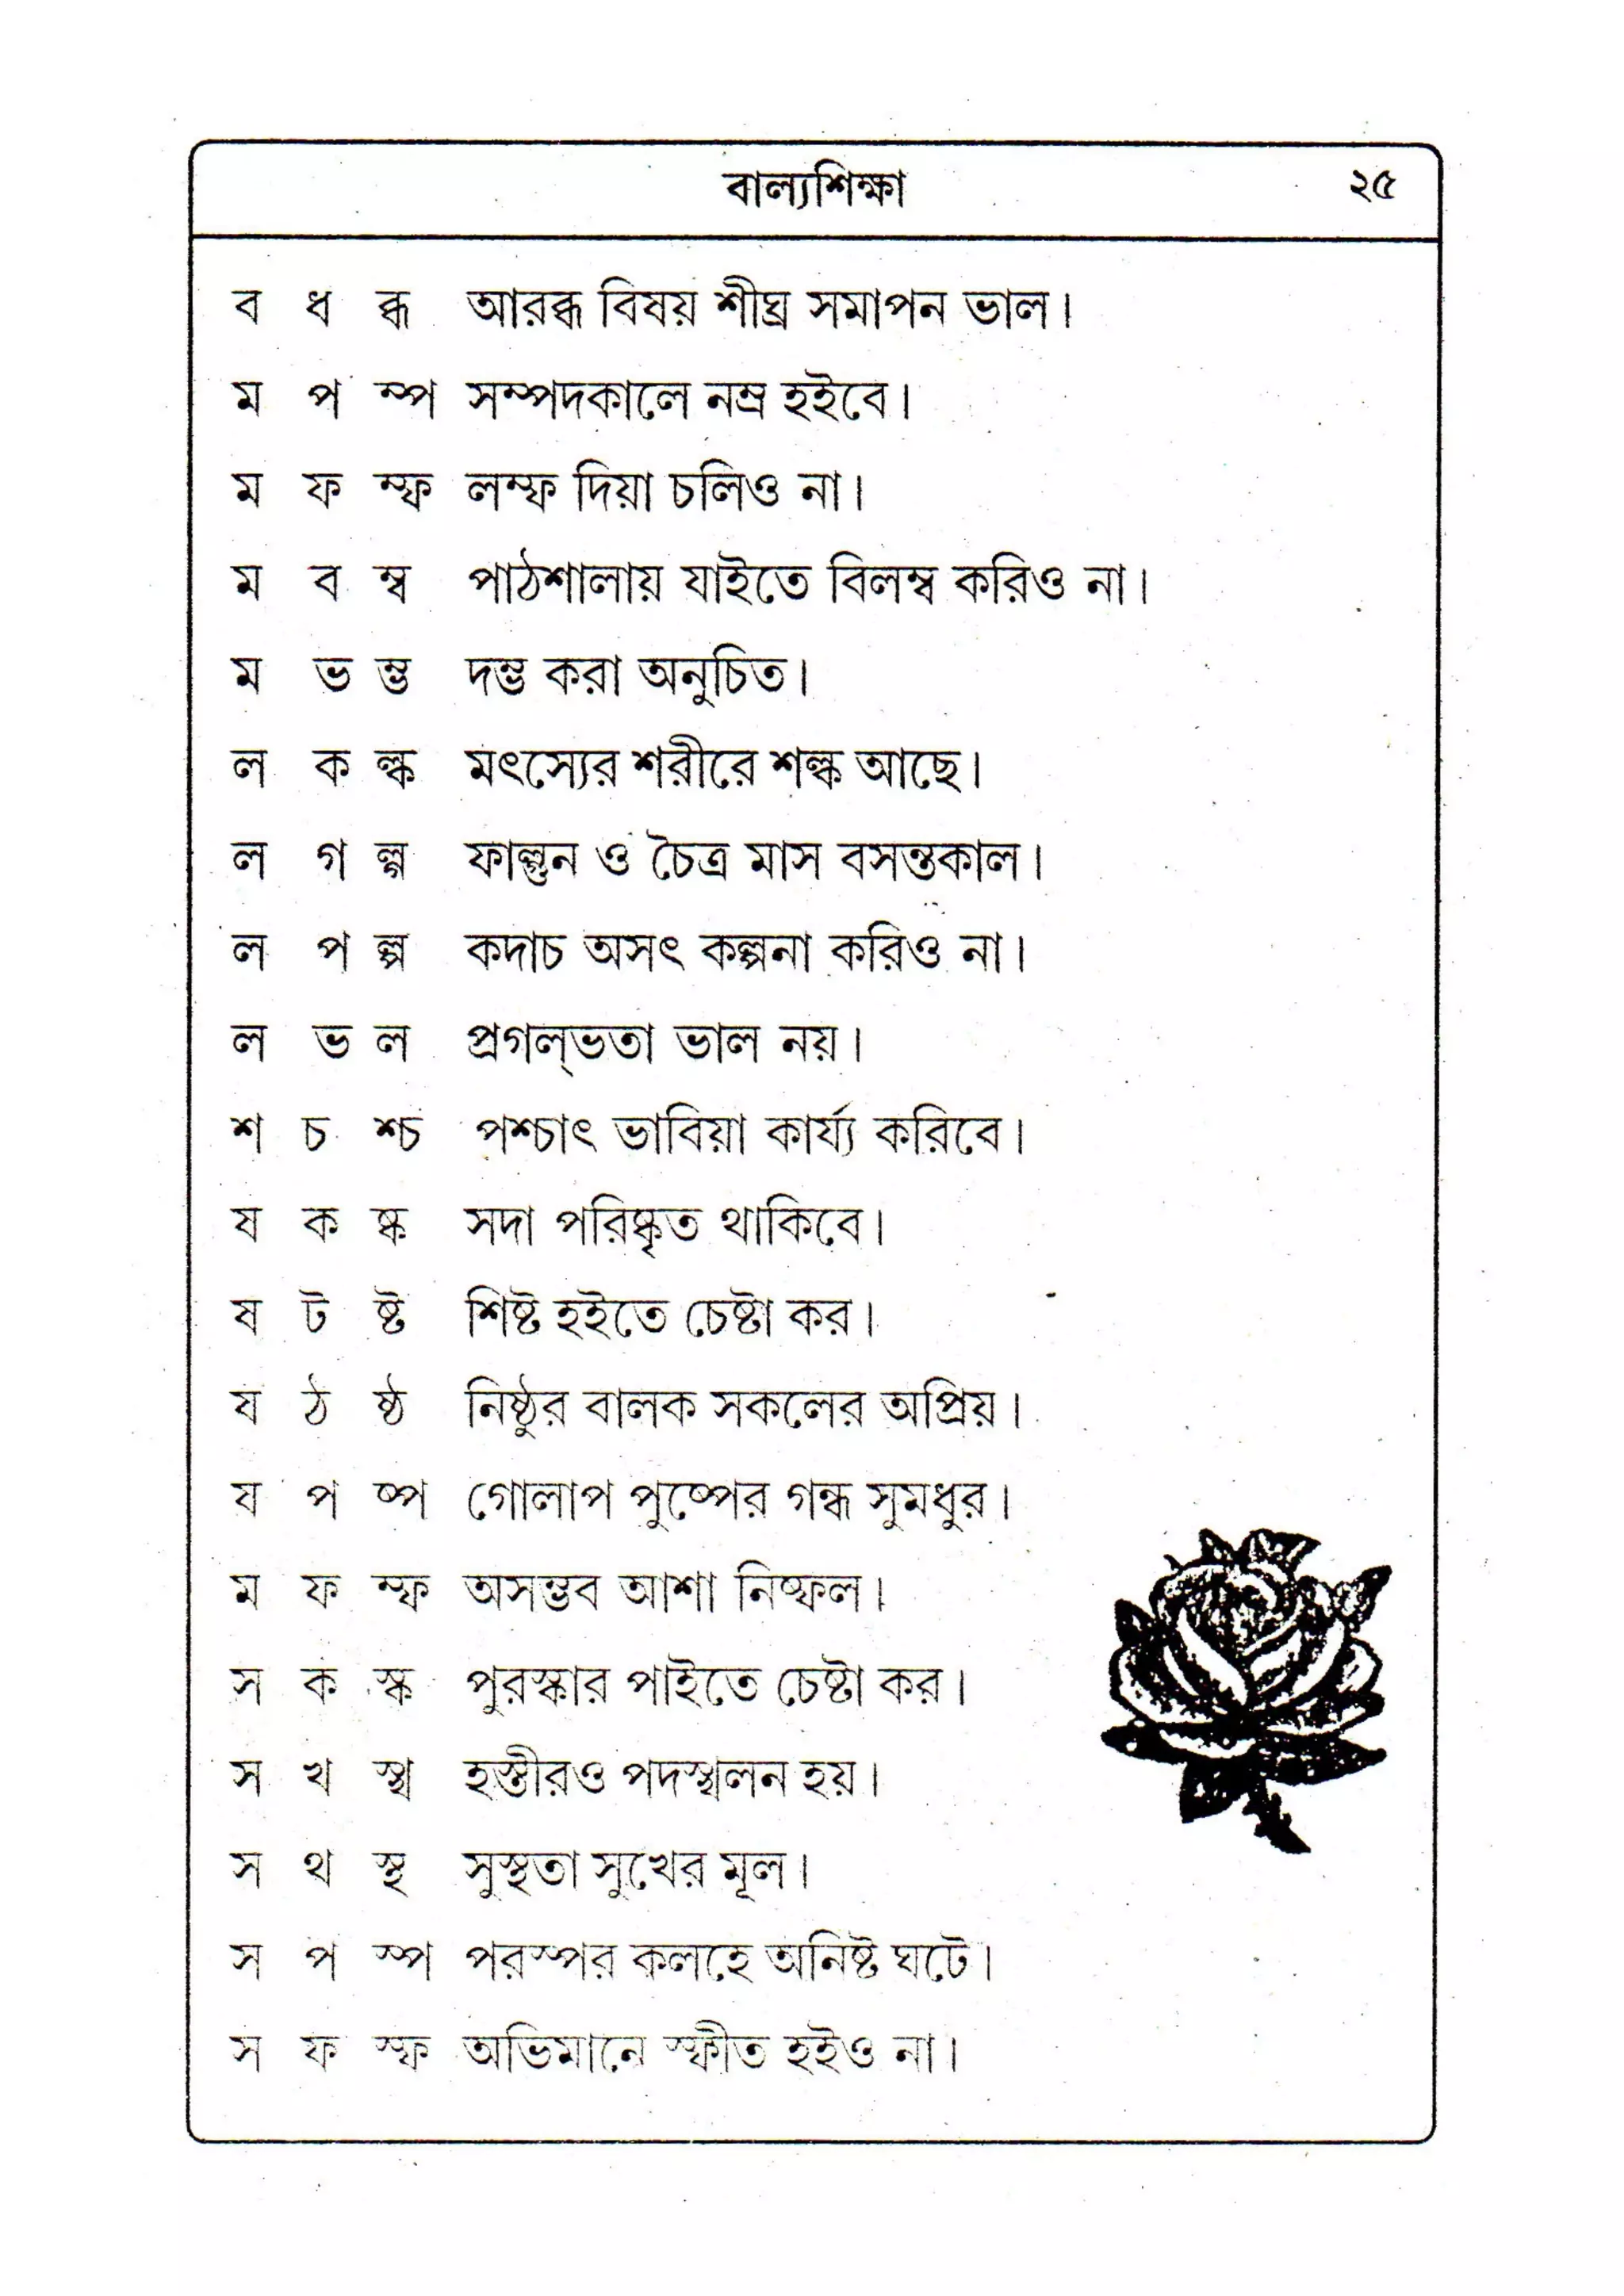 বাল্যশিক্ষা ২৫
ব ধ ব্ধ আরব্ধ বিষয় শীঘ্র সমাপন ভাল।
ম প ম্প সম্পদকালে নম্র হইবে।
ম ফ ম্ফ লম্ফ দিয়া চলিও না।
ম ব ম্ব পাঠশালায় যাইতে বিলম্ব করিও না।
ম ভ ম্ভ দম্ভ করা অনুচিত।
ল ক ল্ক মৎস্যের শরীরে শল্ক আছে।
ল গ ল্গ ফাল্গুন ও চৈত্র মাস বসন্তকাল।
ল প ল্প কদাচ অসৎ কল্পনা করিও না।
ল ভ ল প্রগল্‌ভতা ভাল নয়।
শ চ শ্চ পশ্চাৎ ভাবিয়া কার্য্য করিবে।
ষ ক ষ্ক সদা পরিষ্কৃত থাকিবে।
ষ ট ষ্ট শিষ্ট হইতে চেষ্টা কর।
য ঠ ষ্ঠ নিষ্ঠুর বালক সকলের অপ্রিয়।
য প ষ্প গোলাপ পুষ্পের গন্ধ সুমধুর।
ম ফ ম্ফ অসম্ভব আশা নিষ্ফল।
স ক স্ক পুরস্কার পাইতে চেষ্টা কর।
স খ স্খ হস্তীরও পদস্খলন হয়।
স থ স্থ সুস্থতা সুখের মূল।
স প স্প পরস্পর কলহে অনিষ্ট ঘটে।
স ফ স্ফ অভিমানে স্ফীত হইও না।